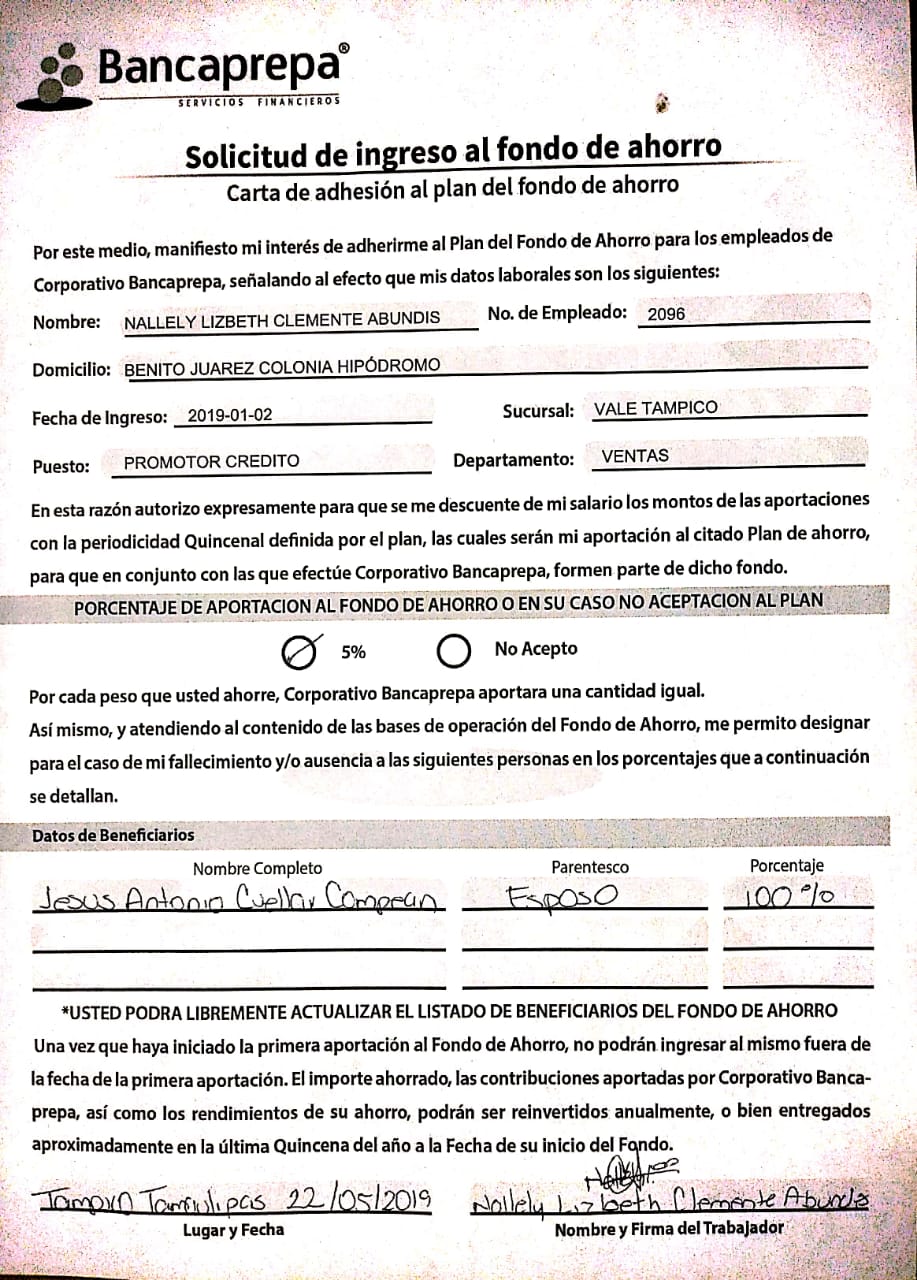 Bancaprepa®
SERVICIOS FINANCIEROS
Solicitud de ingreso al fondo de ahorro
Carta de adhesión al plan del fondo de ahorro
Por este medio, manifiesto mi interés de adherirme al Plan del Fondo de Ahorro para los empleados de
Corporativo Bancaprepa, señalando al efecto que mis datos laborales son los siguientes:
Nombre: NALLELY LIZBETH CLEMENTE ABUNDIS No. de Empleado: 2096
Domicilio: BENITO JUAREZ COLONIA HIPÓDROMO
Fecha de Ingreso: 2019-01-02 Sucursal: VALE TAMPICO
Puesto: PROMOTOR CREDITO Departamento: VENTAS
En esta razón autorizo expresamente para que se me descuente de mi salario los montos de las aportaciones
con la periodicidad Quincenal definida por el plan, las cuales serán mi aportación al citado Plan de ahorro,
para que en conjunto con las que efectúe Corporativo Bancaprepa, formen parte de dicho fondo.
PORCENTAJE DE APORTACION AL FONDO DE AHORRO O EN SU CASO NO ACEPTACION AL PLAN
5% No Acepto
Por cada peso que usted ahorre, Corporativo Bancaprepa aportara una cantidad igual.
Así mismo, y atendiendo al contenido de las bases de operación del Fondo de Ahorro, me permito designar
para el caso de mi fallecimiento y/o ausencia a las siguientes personas en los porcentajes que a continuación
se detallan.
Datos de Beneficiarios
Nombre Completo Parentesco Porcentaje
Jesus Antonio Cuellar Compean Esposo 100%
*USTED PODRA LIBREMENTE ACTUALIZAR EL LISTADO DE BENEFICIARIOS DEL FONDO DE AHORRO
Una vez que haya iniciado la primera aportación al Fondo de Ahorro, no podrán ingresar al mismo fuera de
la fecha de la primera aportación. El importe ahorrado, las contribuciones aportadas por Corporativo Banca-
prepa, así como los rendimientos de su ahorro, podrán ser reinvertidos anualmente, o bien entregados
aproximadamente en la última Quincena del año a la Fecha de su inicio del Fondo.
22/05/2019 Nallely Lizbeth Clemente Abundis
Lugar y Fecha Nombre y Firma del Trabajador